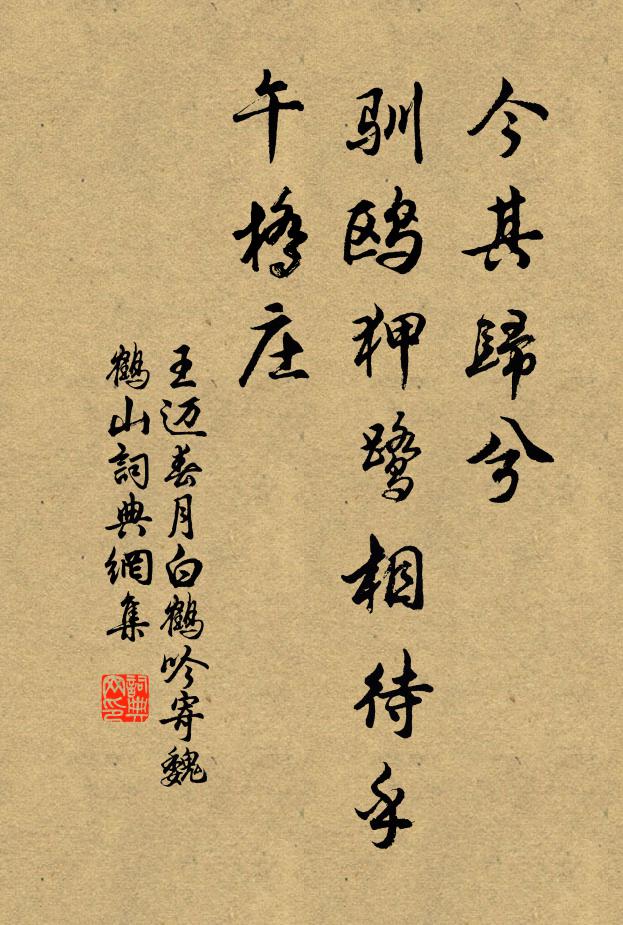 今其歸兮
馴鷗狎鷺相待乎
午橋庄
王迈春月白鶴吟寄魏
鶴山詞典網集
詞典